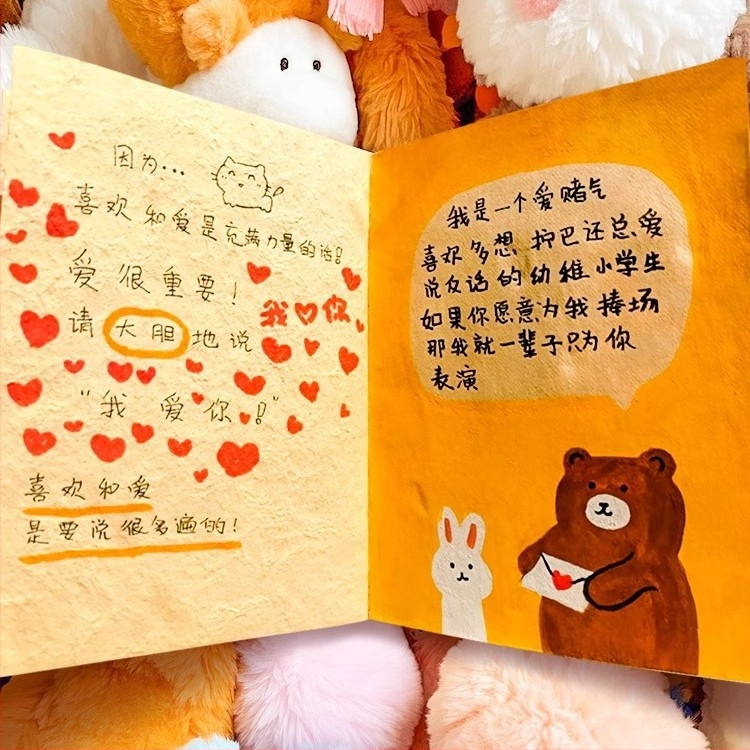 因为...
喜欢和爱是充满力量的话!
爱很重要!
请大胆地说
我♡你
“我爱你!”
喜欢和爱
是要说很多遍的!
我是一个爱赌气
喜欢多想 拧巴还总爱
说反话的幼稚小学生
如果你愿意为我捧场
那我就一辈子只为你
表演